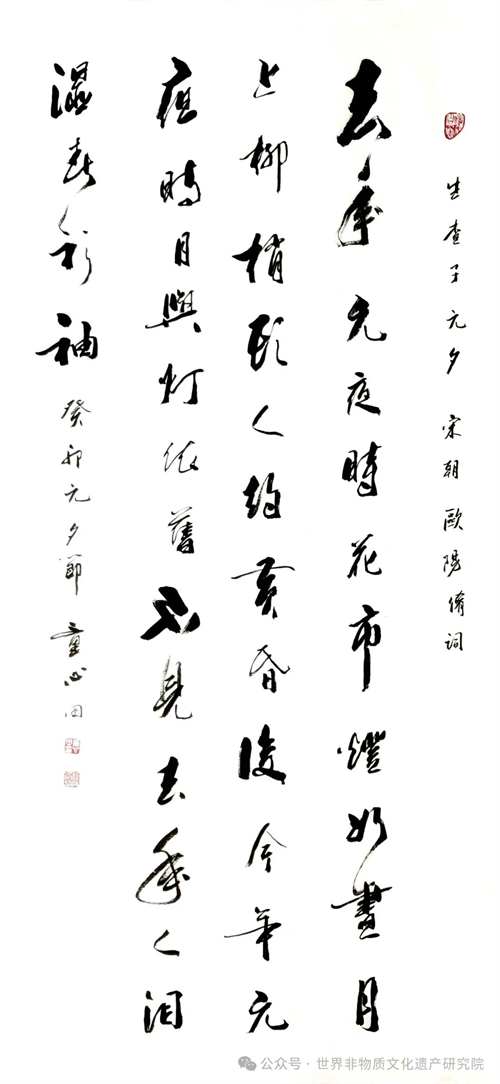 生查子元夕 宋朝 歐陽脩詞
去年元夜時花市燈如晝月
上柳梢頭人約黄昏後今年元
夜時月與灯依舊不見去年人泪
濕春衫袖 癸卯元夕節 童心田
公众号 · 世界非物质文化遗产研究院